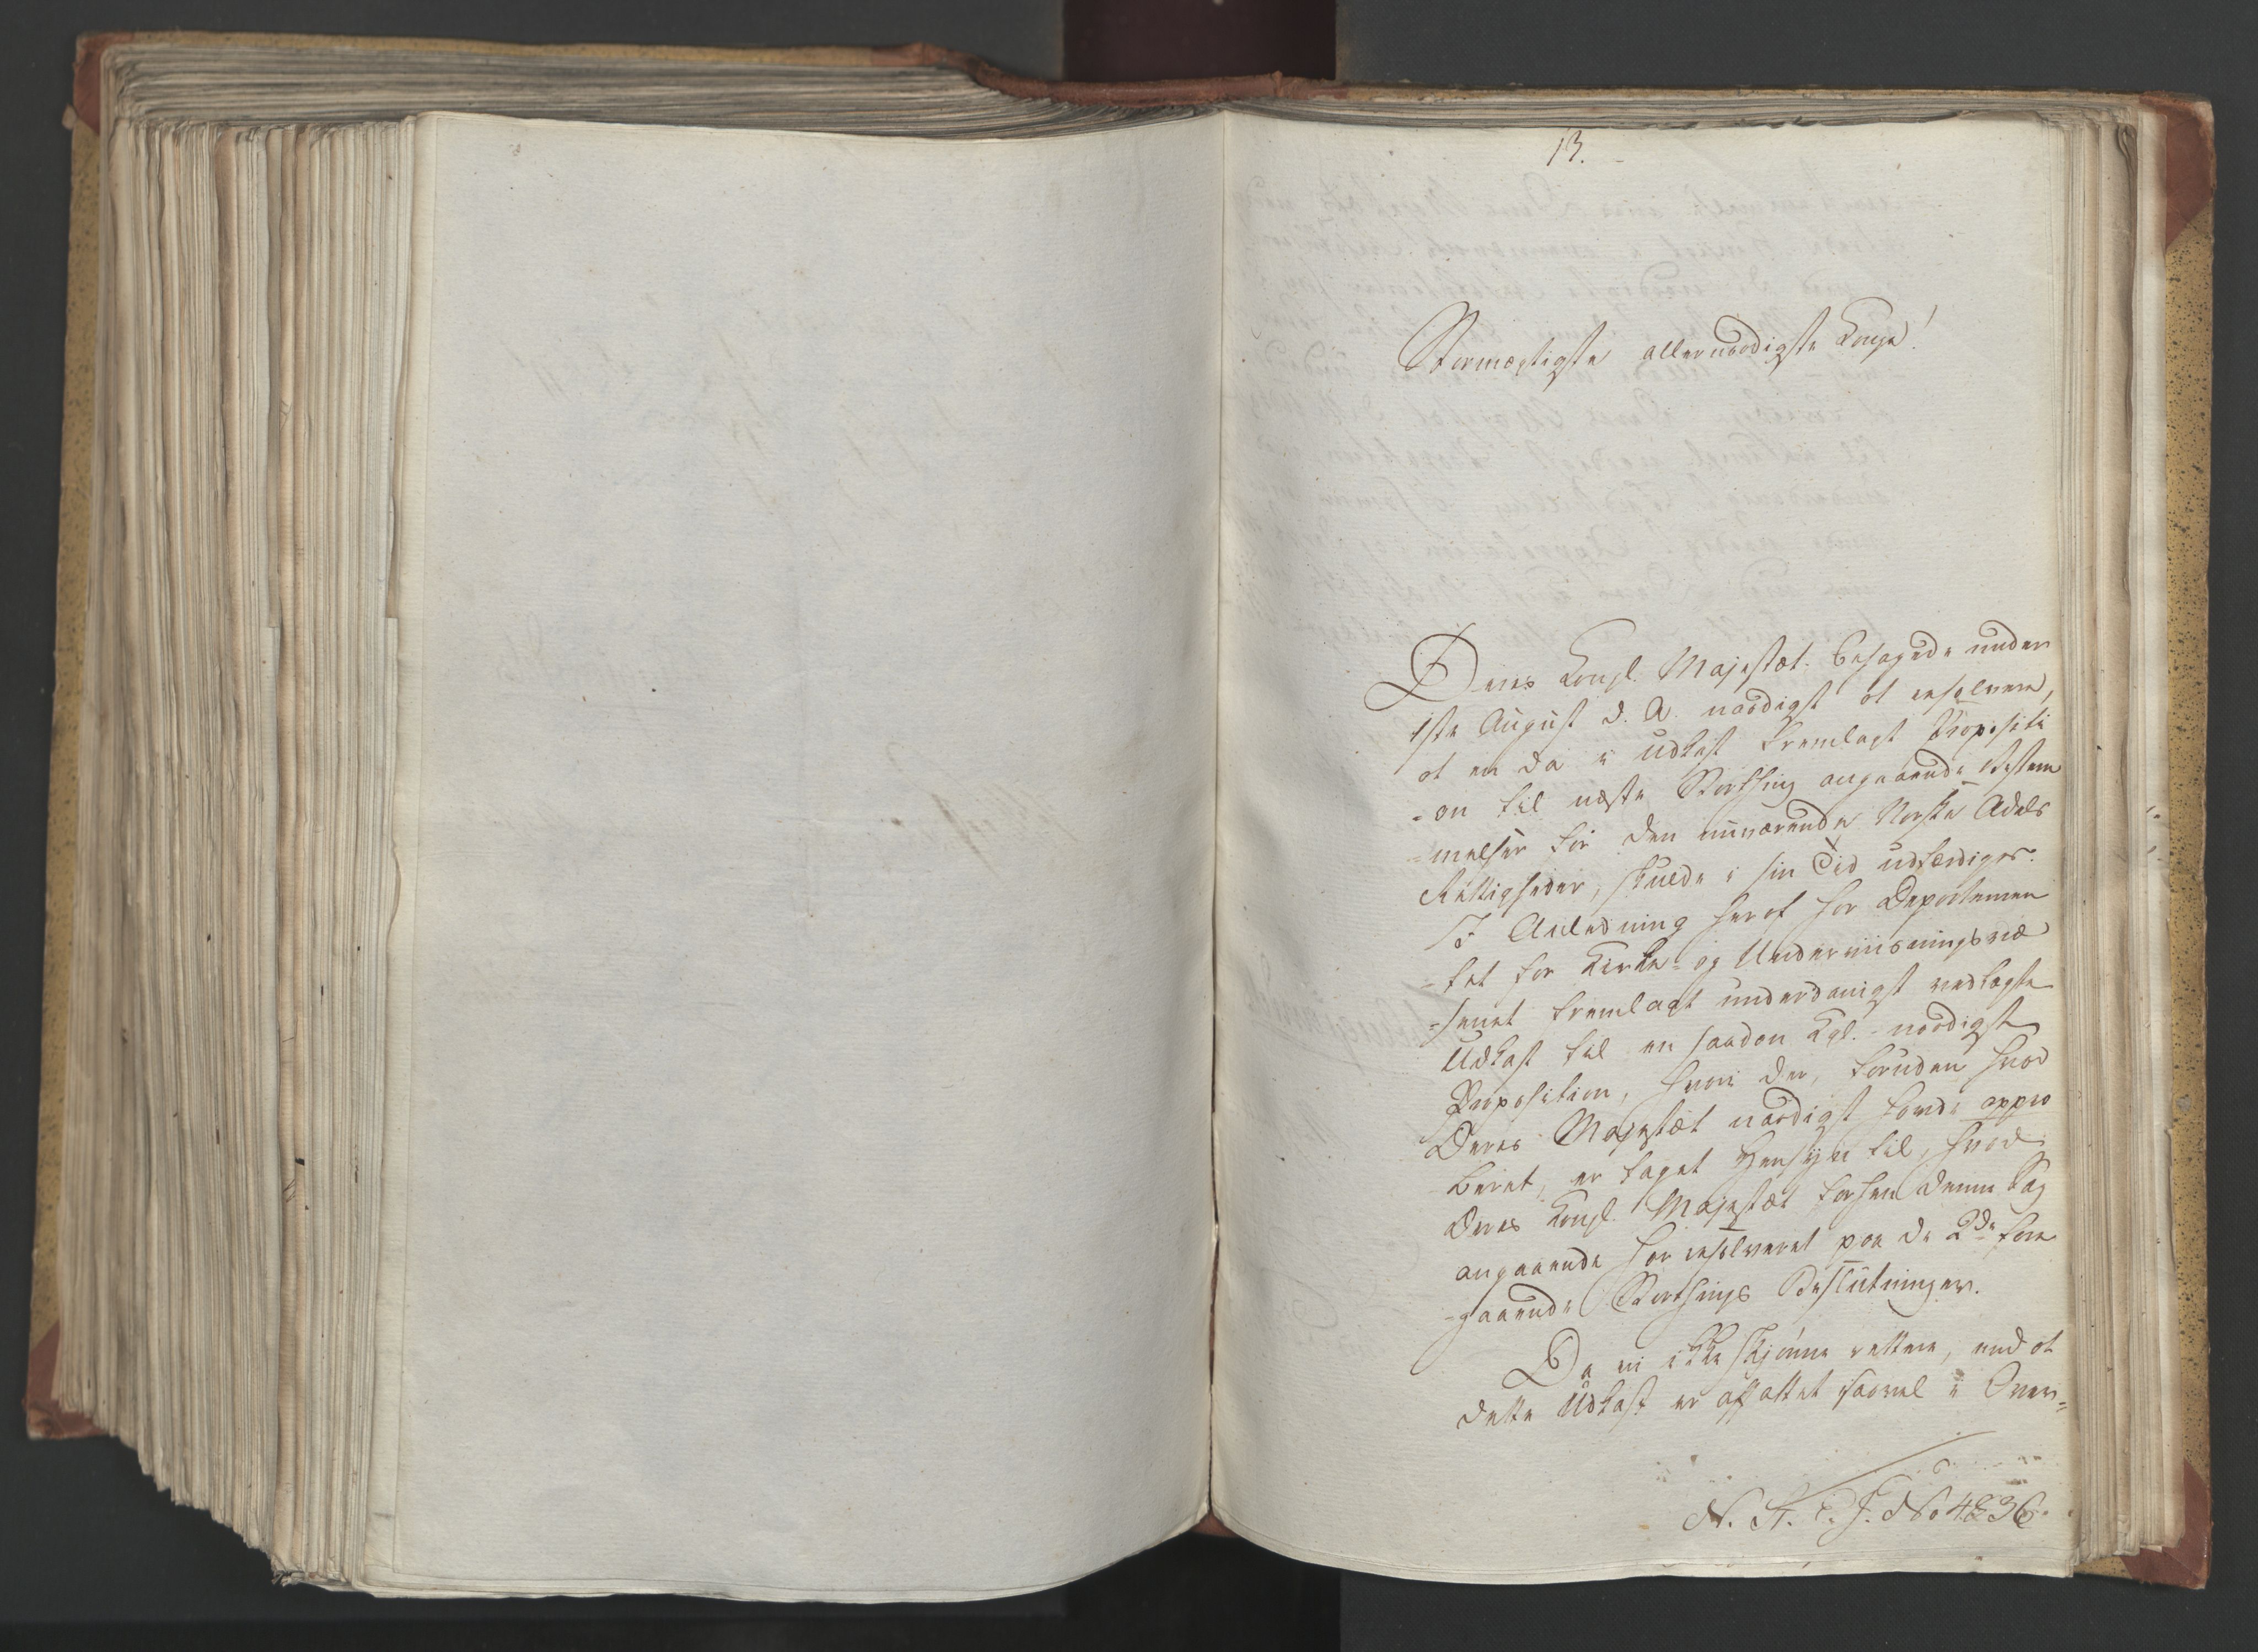 13.
Stormægtigste allernaadigste Konge!
Deres Kongl. Majestæt behagede under
1ste August d. A. naadigst at resolvere,
at en da i Udkast fremlagt Propositi
-on til næste Storthing angaaende Bestem
-melser for den nuværende Norske Adels
Rettigheder, skulde i sin Tid udfærdiges.
I Anledning heraf har Departemen
-tet for Kirke- og Underviisningsvæ
-senet fremlagt underdanigst vedlagte
Udkast til en saadan Kgl. naadigst
Proposition, hvori der, foruden hvad
Deres Majestæt naadigst fandt appro
beret, er taget Hensyn til, hvad
Deres Kongl. Majestæt forhen denne Sag
angaaende har resolveret paa de 2de fore
-gaaende Storthings Beslutninger.
Da vi ikke skjønne rettere, end at
dette Udkast er affattet saavel i Over-
N. St. C. J. No 4836.